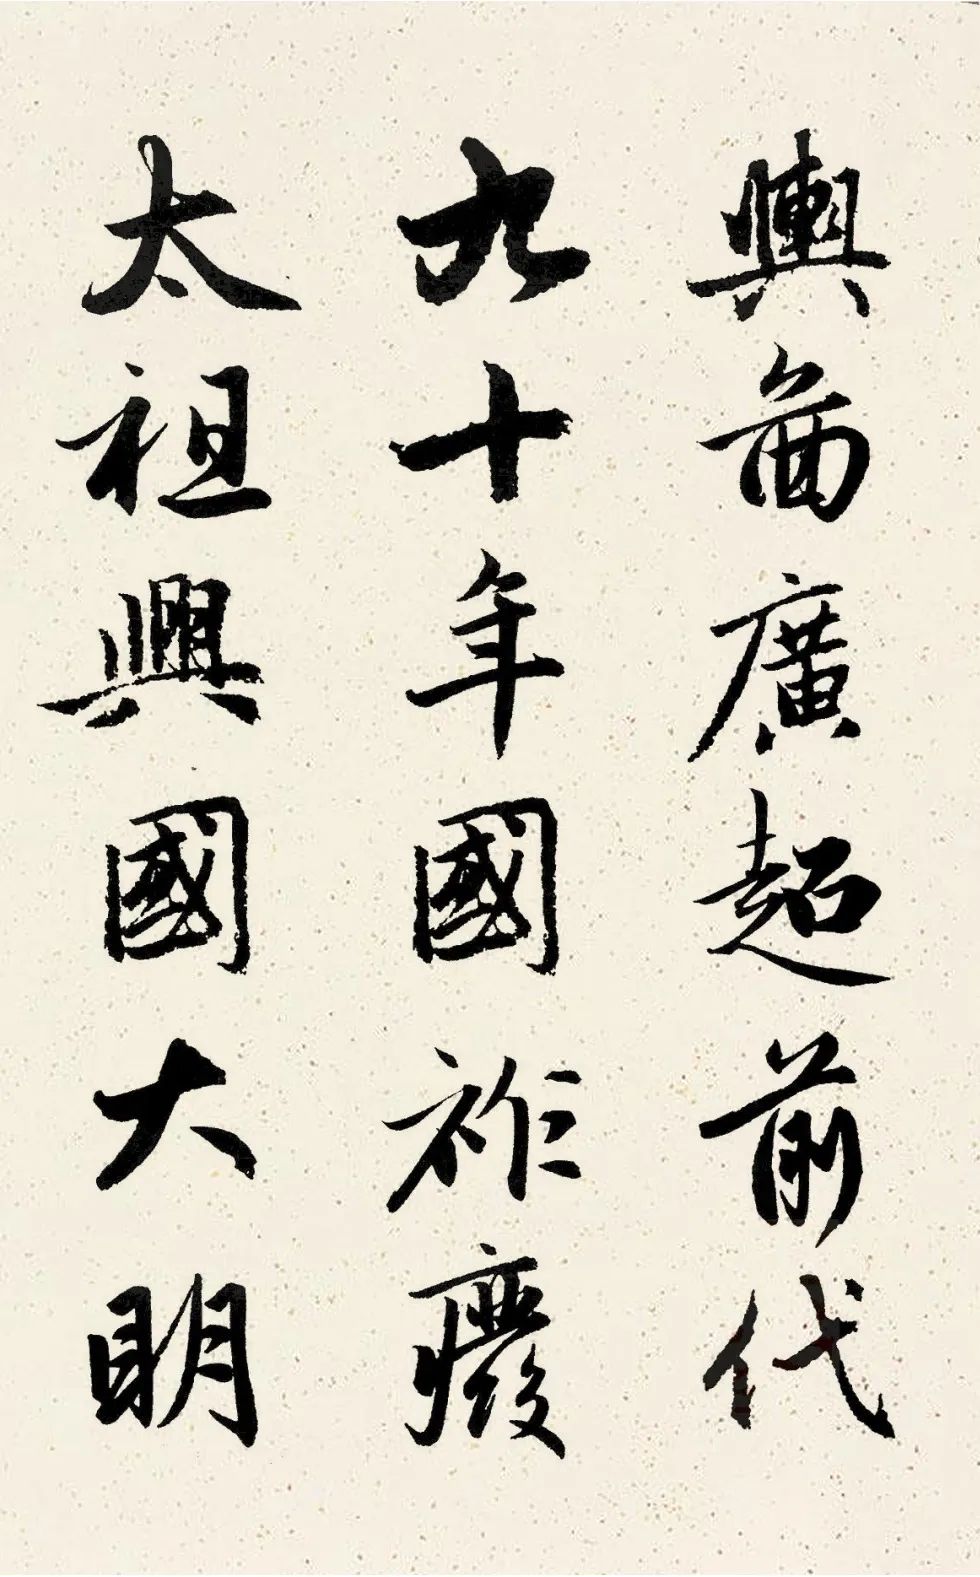 輿啚廣超前代
九十年國祚廢
太祖興國大明